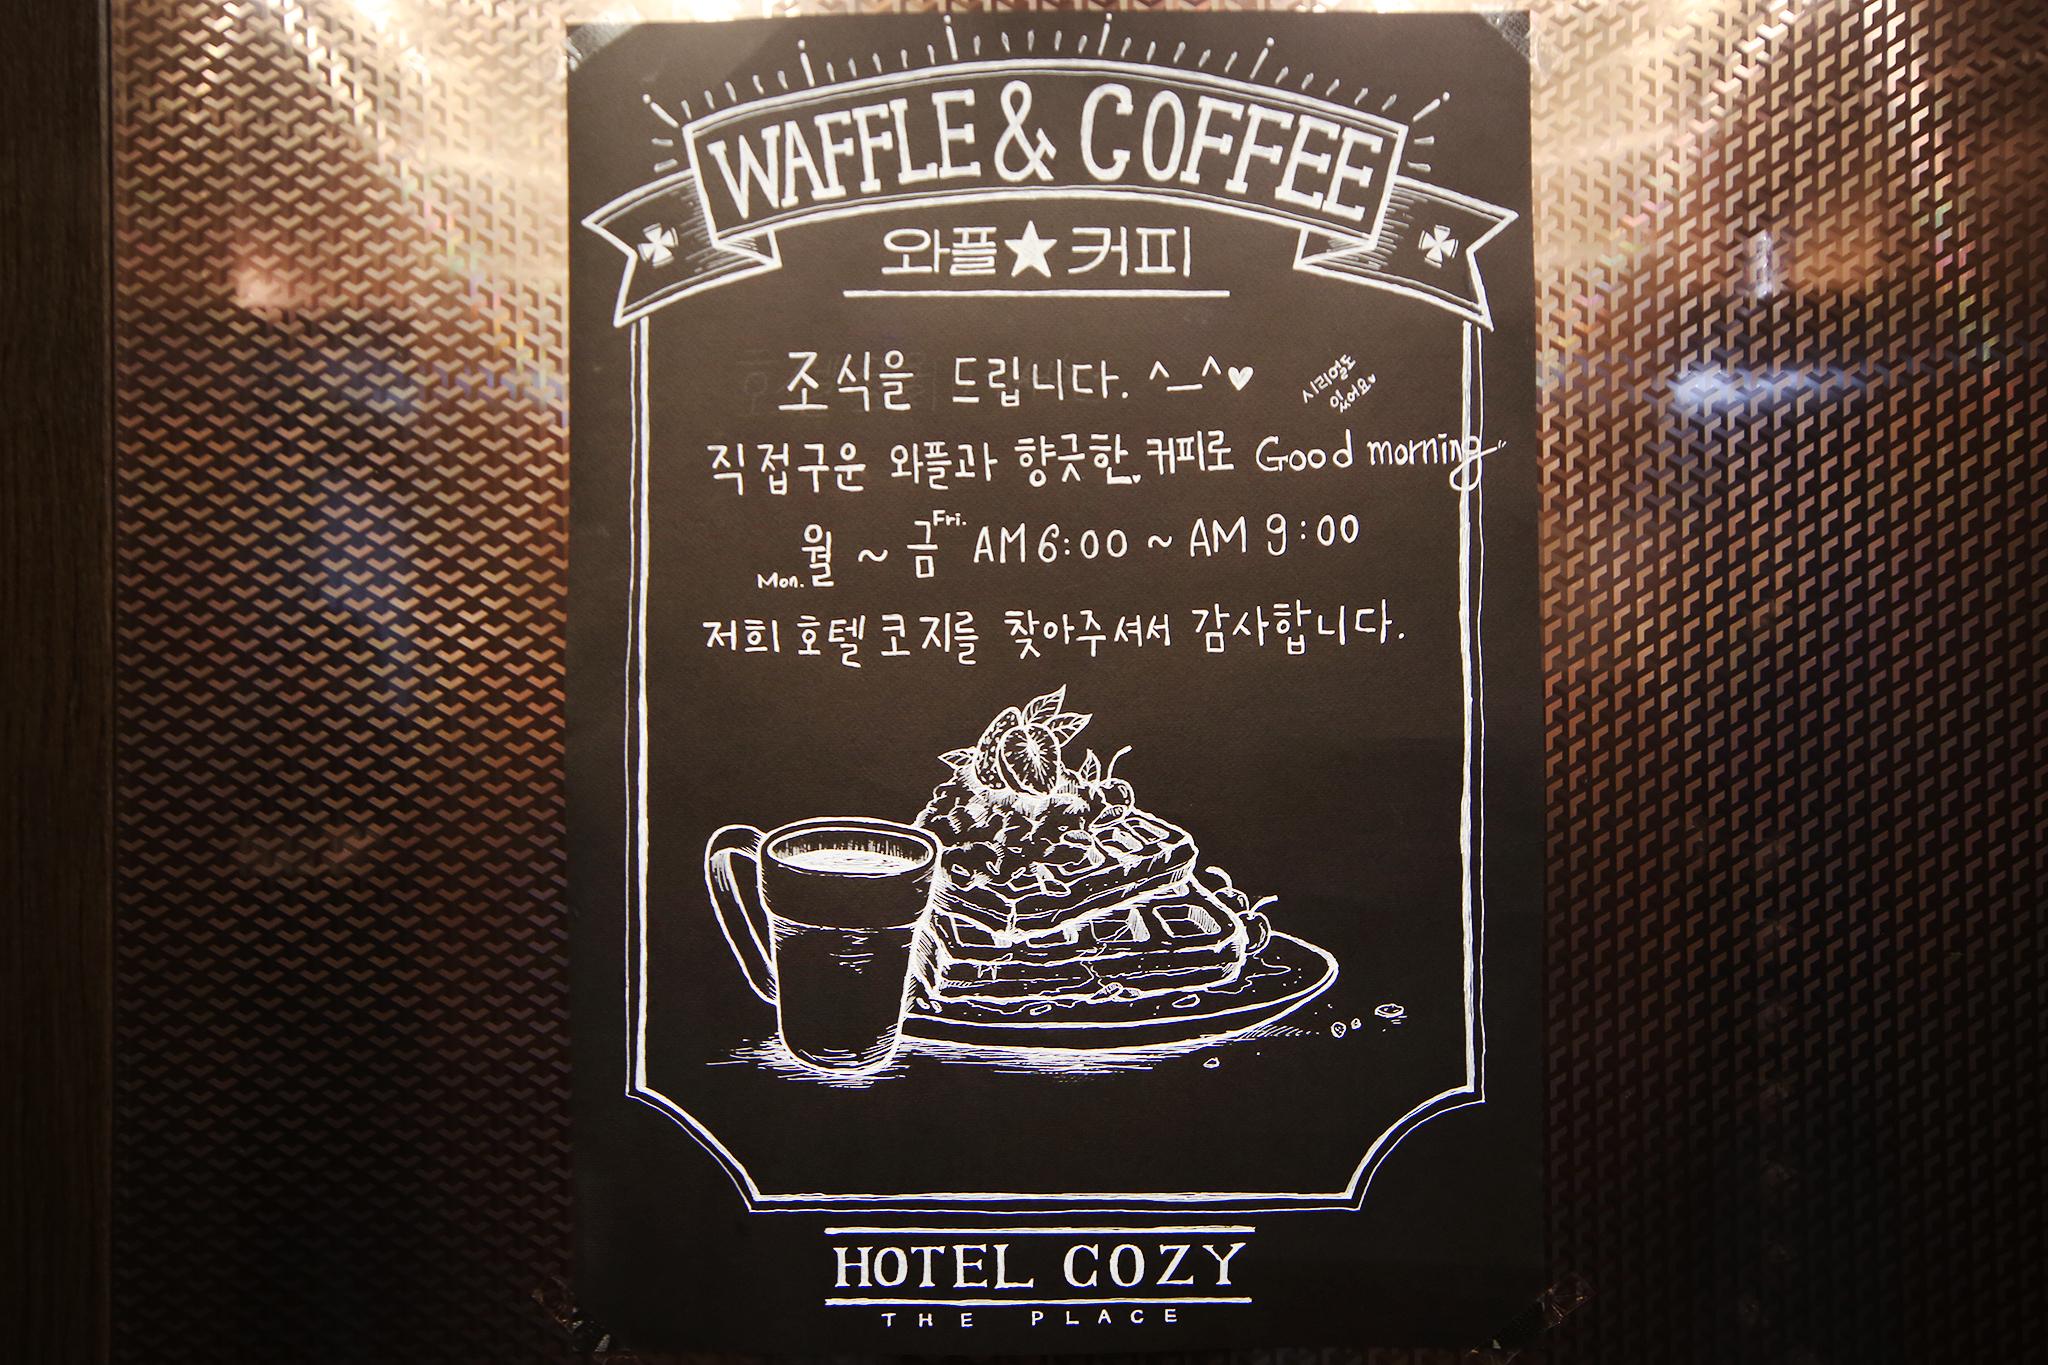 WAFFLE & COFFEE
와플★커피
조식을 드립니다. ^_^♥
시리얼도
있어요♥
직접구운 와플과 향긋한 커피로 Good morning~"
Mon. 월 ~ 금 Fri. AM 6:00 ~ AM 9:00
저희 호텔 코지를 찾아주셔서 감사합니다.
HOTEL COZY
THE PLACE